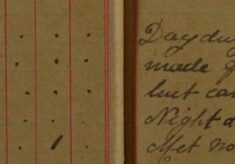 Day du
made
but ca
Night a
Met no